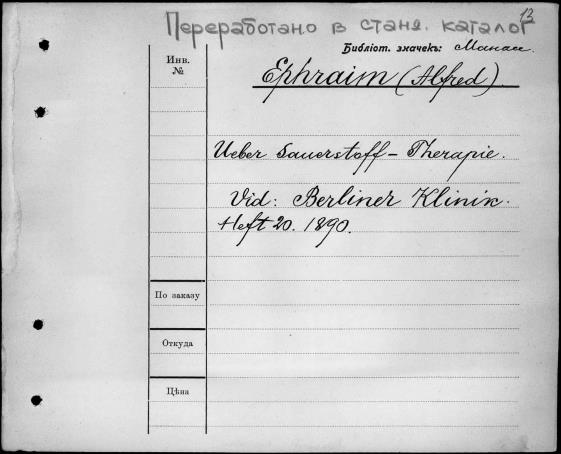 Переработано в станд. каталог
13
Библіот. значекъ:
Инв.
№
Ephraim (Alfred).
Ueber Sauerstoff-Therapie.
Vid: Berliner Klinik.
Heft 20. 1890.
По заказу
Откуда
Цѣна